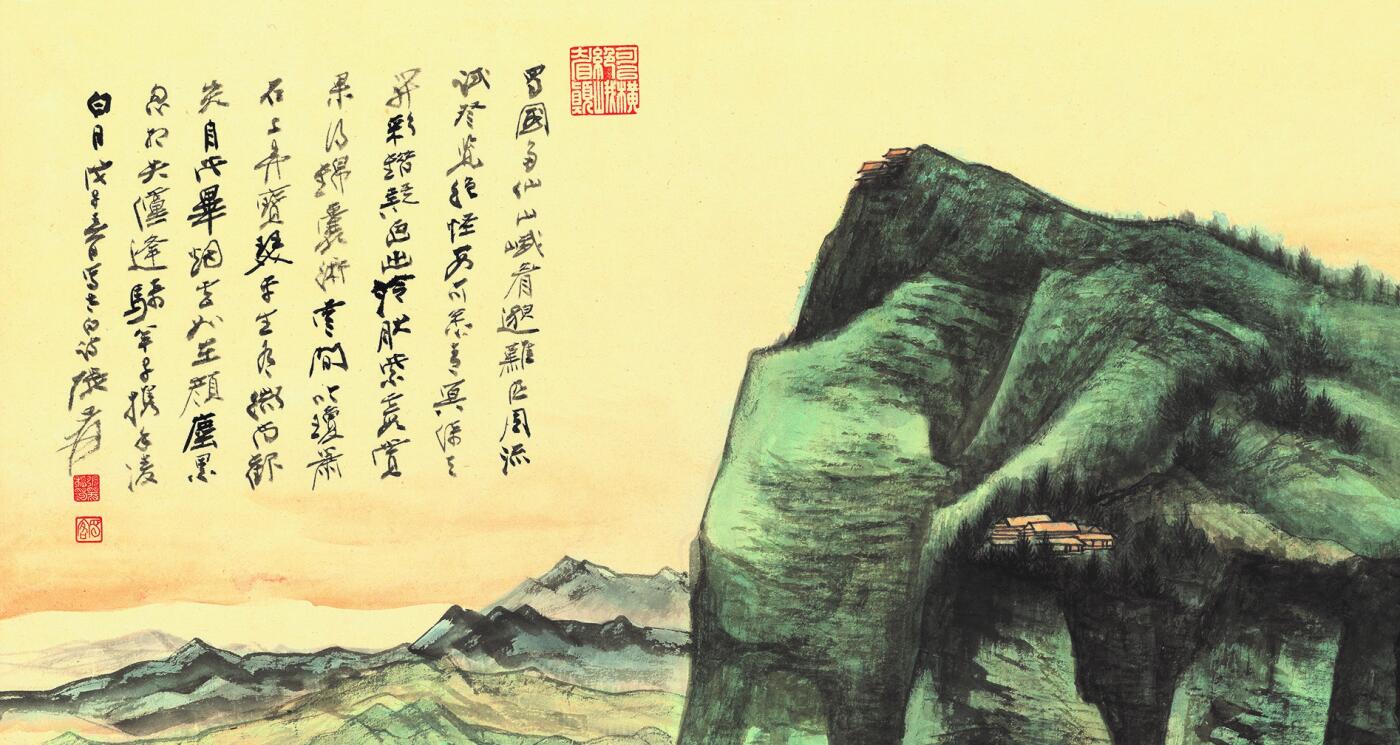 可以橫絕峨眉巔
蜀國多仙山峨眉邈難匹周流
試登覽絕怪安可悉青冥倚天
開彩錯疑画出泠然紫霞賞
果得錦囊術雲間吟瓊簫
石上弄寶瑟平生有微尚歡
笑自此畢烟容如在顏塵累
忽相失儻逢騎羊子攜手凌
白日戊子春日寫太白詩張爰